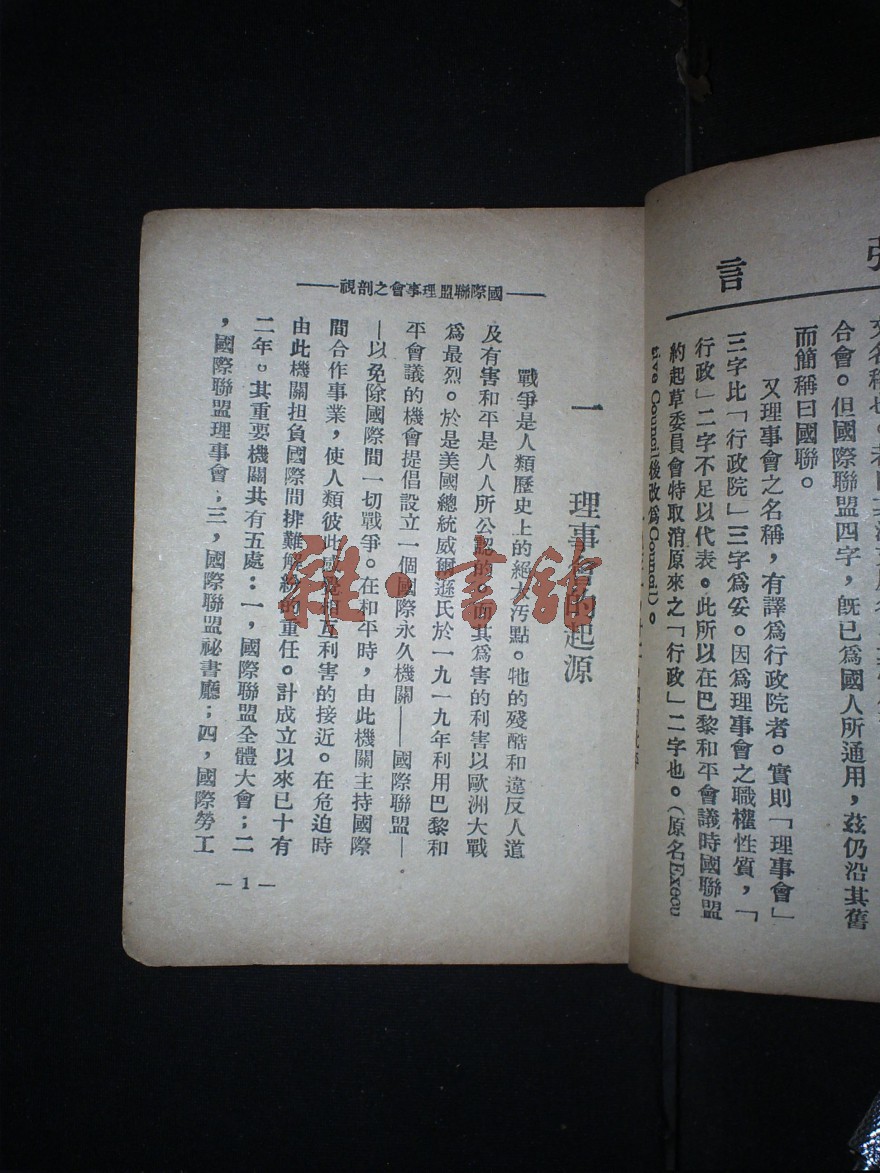 言
合會。但國際聯盟四字，旣已爲國人所通用，茲仍沿其舊
而簡稱曰國聯。
又理事會之名稱，有譯爲行政院者。實則「理事會」
三字比「行政院」三字爲妥。因爲理事會之職權性質，「
行政」二字不足以代表。此所以在巴黎和平會議時國聯盟
約起草委員會特取消原來之「行政」二字也。（原名Execu
tive Council後改爲Council）。
國際聯盟理事會之剖視
一 理事會的起源
戰爭是人類歷史上的絕大汚點。牠的殘酷和違反人道
及有害和平是人人所公認的。而其爲害的利害以歐洲大戰
爲最烈。於是美國總統威爾遜氏於一九一九年利用巴黎和
平會議的機會提倡設立一個國際永久機關——國際聯盟—
—以免除國際間一切戰爭。在和平時，由此機關主持國際
間合作事業，使人類彼此感覺相互利害的接近。在危迫時
由此機關担負國際間排難解紛的重任。計成立以來已十有
二年。其重要機關共有五處：一，國際聯盟全體大會；二
，國際聯盟理事會；三，國際聯盟祕書廳；四，國際勞工
—1—
雜·書館